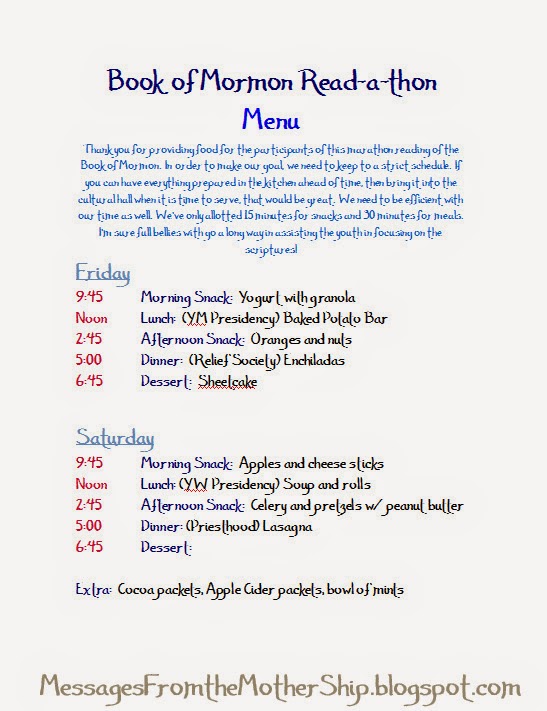 Book of Mormon Read-a-thon
Menu
Thank you for providing food for the participants of this marathon reading of the
Book of Mormon. In order to make our goal, we need to keep to a strict schedule. If
you can have everything prepared in the kitchen ahead of time, then bring it into the
cultural hall when it is time to serve, that would be great. We need to be efficient with
our time as well. We've only allotted 15 minutes for snacks and 30 minutes for meals.
I'm sure full bellies with go a long way in assisting the youth in focusing on the
scriptures!
Friday
9:45 Morning Snack: Yogurt with granola
Noon Lunch: (YM Presidency) Baked Potato Bar
2:45 Afternoon Snack: Oranges and nuts
5:00 Dinner: (Relief Society) Enchiladas
6:45 Dessert: Sheetcake
Saturday
9:45 Morning Snack: Apples and cheese sticks
Noon Lunch: (YW Presidency) Soup and rolls
2:45 Afternoon Snack: Celery and pretzels w/ peanut butter
5:00 Dinner: (Priesthood) Lasagna
6:45 Dessert:
Extra: Cocoa packets, Apple Cider packets, bowl of mints
MessagesFromtheMotherShip.blogspot.com